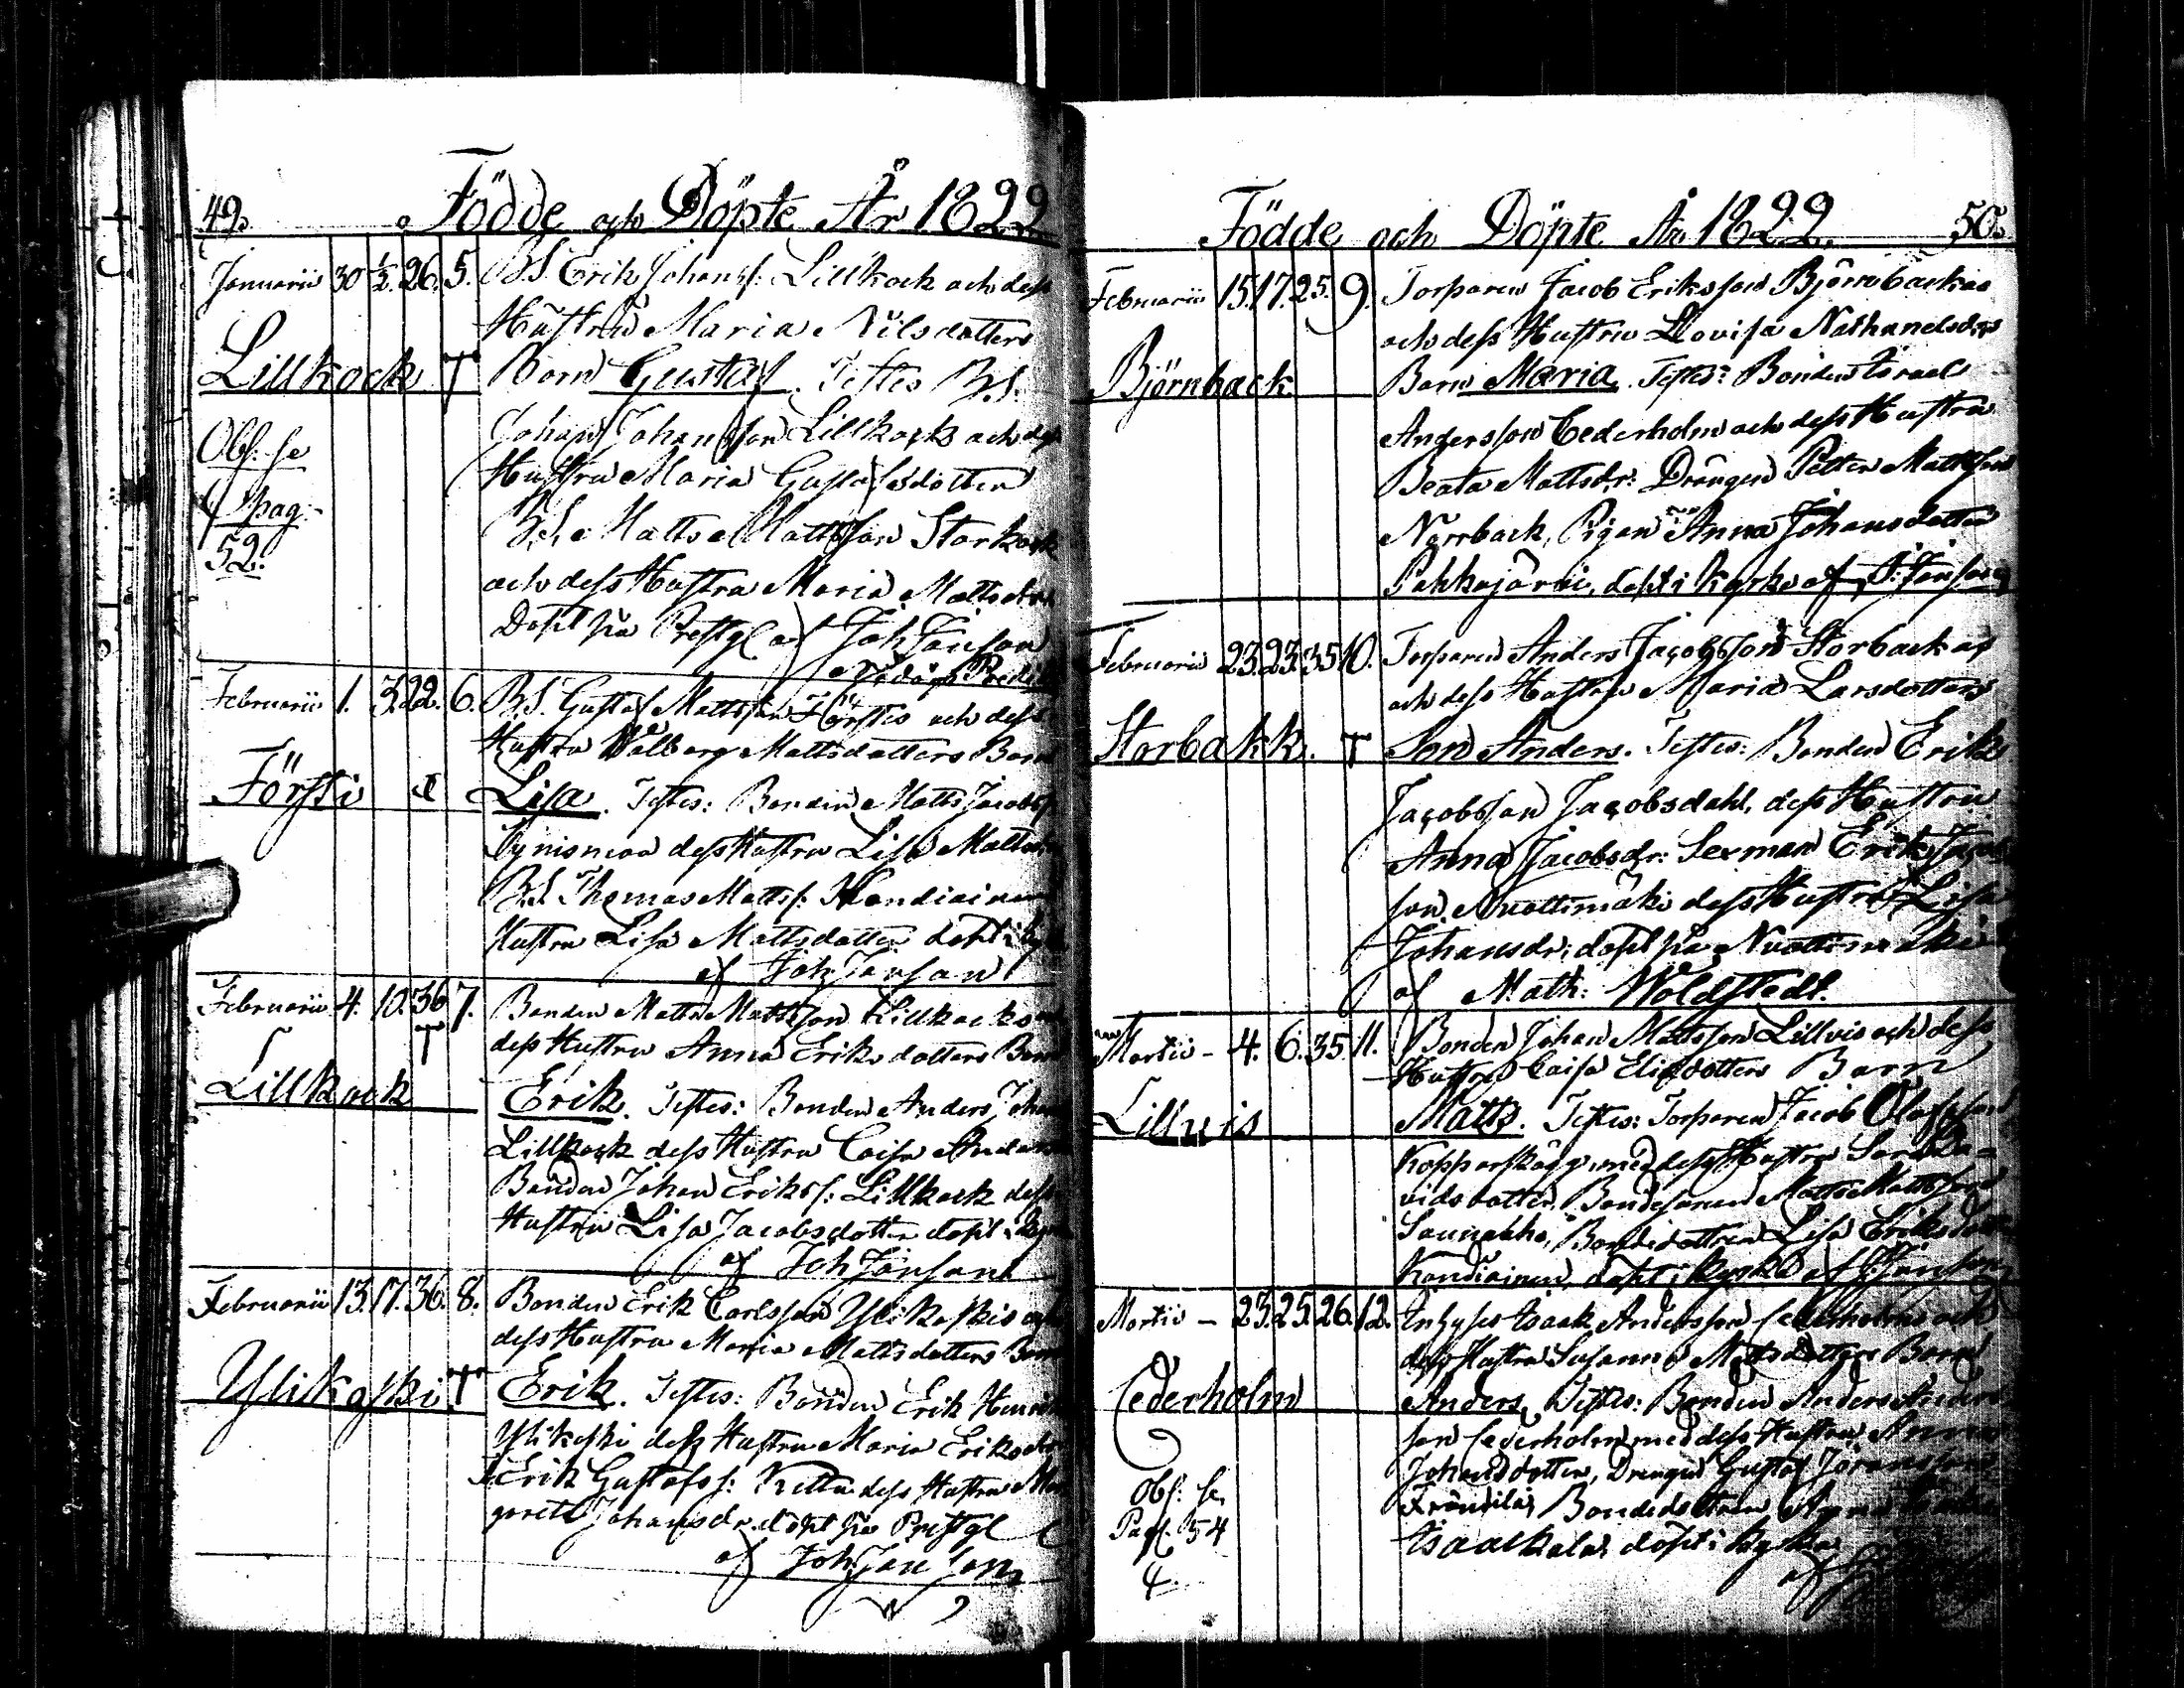 49. Födde och Döpte År 1822
Januarii 30 1/2. 26. 5. B.S. Erik Johanss: Lillkock och dess
Hustru Maria Nilsdotters
Lillkock T Barn Gustaf. Testes B.S.
Johan Johansson Lillkock och dess
Obs: se Hustru Maria Gustafsdotter
pag: B.S. Matts Mattsson Storkock
52. och dess Hustru Maria Mattsdotter
Döpt på Prestg. af Joh Janson
Februarii 1. 3. 22. 6. B.S. Gustaf Mattsson Förstis och dess
Hustru Walborg Mattsdotters Barn
Försti Lisa. Testes: Bonden Matts Jacobss:
dess Hustru Lisa Matts
B.S. Thomas Mattss: Kandiainen
Hustru Lisa Mattsdotter döpt i
af Joh Janson
Februarii 4. 10. 36 7. Bonden Matts Mattsson Lillkocks och
T dess Hustru Anna Eriksdotters Barn
Lillkock Erik. Testes: Bonden Anders Johan
Lillkock dess Hustru Caisa Anders
Bonden Johan Erikss: Lillkock dess
Hustru Lisa Jacobsdotter döpt i
af Joh Janson
Februarii 13. 17. 36. 8. Bonden Erik Carlsson Ylikoskis och
dess Hustru Maria Mattsdotters Barn
Ylikoski T Erik. Testes: Bonden Erik Henriks
Ylikoski dess Hustru Maria Eriksdotter
Erik Gustafss: Kettu dess Hustru Mar
gareta Johansdr. döpt på Prestg
af Joh Janson
Födde och Döpte År 1822. 50.
Februarii 15. 17. 25. 9. Torparen Jacob Eriksson Björnbackas
och dess Hustru Lovisa Nathanelsdrs
Björnback Barn Maria. Testes: Bonden Israel
Andersson Cederholm och dess Hustru
Beata Mattsdr: Drängen Petter Mattsson
Norrback, Pigan Anna Johansdotter
Pahkajärvi, döpt i kyrko af J. Janson
Februarii 23. 23. 35 10. Torparen Anders Jacobsson Storbackas
och dess Hustru Maria Larsdotters
Storbakk. T Son Anders. Testes: Bonden Erik
Jacobsson Jacobsdahl, dess Hustru
Anna Jacobsdr: Sexman Erik Jacob
son Nuottimäki dess Hustru Lisa
Johansdr: döpt på Nuottimäki
af Math: Woldstedt.
Martii - 4. 6. 35. 11. Bonden Johan Mattsson Lillvis och dess
Hustru Caisa Eliedotters Barn
Lillvis Matts. Testes: Torparen Jacob Olofsson
Kopparskägg med dess Hustru Sara Da-
vidsdotter, Bondesonen Matts Mattsson
Saunakko, Bondedottren Lisa Eriksdotter
Kandiainen, döpt i kyrko af J. Janson
Martii - 23. 25. 26. 12. Inhyses Isaak Andersson Cederholms och
dess Hustru Susanna Mattsdotters Barn
Cederholm Anders. Testes: Bonden Anders Anders
son Cederholm med dess Hustru Anna
Johansdotter, Drengen Gustaf Göransson
Obs: se Frändilä, Bondedottren Anna
Pag. 54 Isaakkala, döpt i kyrko
af